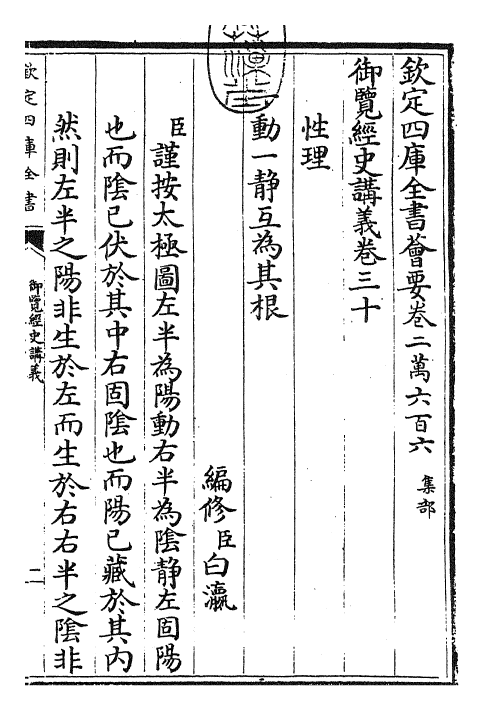 欽定四庫全書薈要卷二萬六百六 集部
御覽經史講義卷三十
性理
一動一静互為其根
編修臣白瀛
臣謹按太極圖左半為陽動右半為陰静左固陽
也而陰已伏於其中右固陰也而陽已藏於其内
然則左半之陽非生於左而生於右右半之陰非
欽定四庫全書
御覽經史講義
二